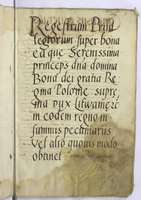 Regestrum Privi
legiorum super bona
ea que Serenissima
princeps dna domina
Bona dei gratia Re
gina Polonie supre
ma dux Litwanie
in eodem regno in
summis pecuniariis
vel alio quovis modo
obtinet